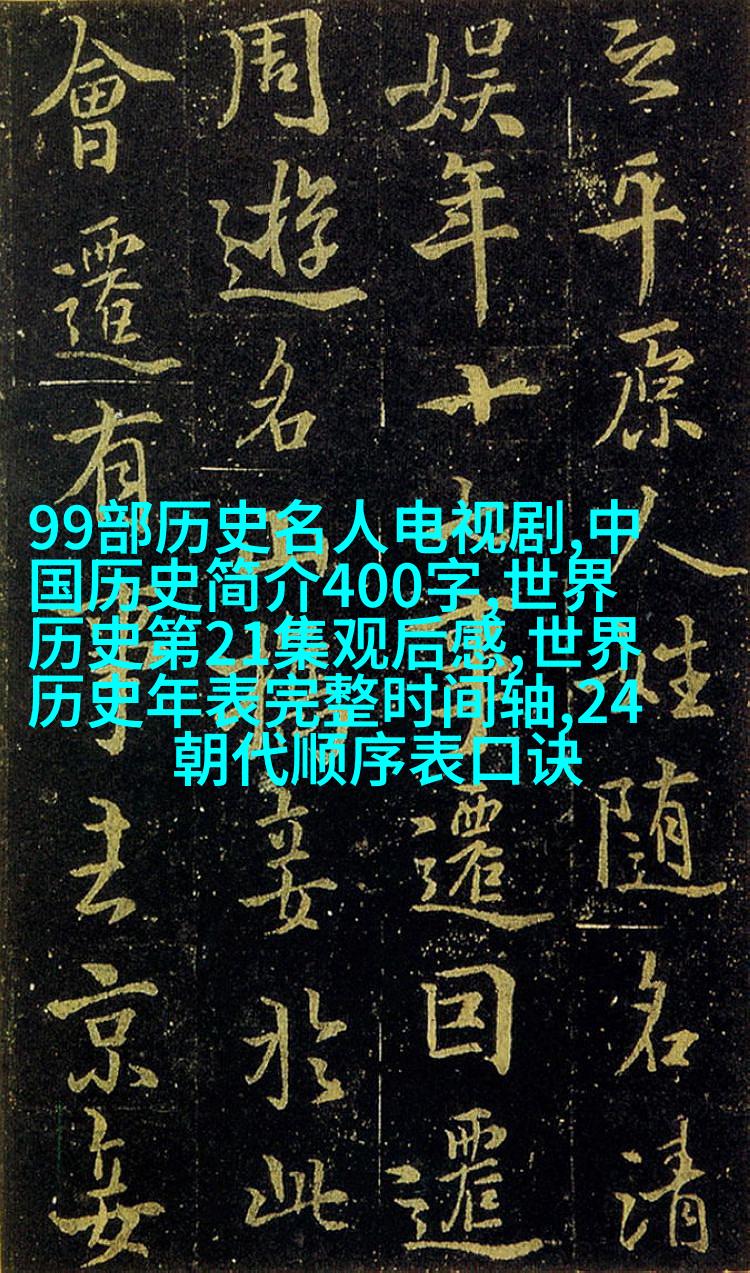 之平原人姓随名清
娱年十遷回遷
周遊名山妾於此
會遷有事去京妾
99部历史名人电视剧,中
国历史简介400字,世界
历史第21集观后感,世界
历史年表完整时间轴,24
朝代顺序表口诀